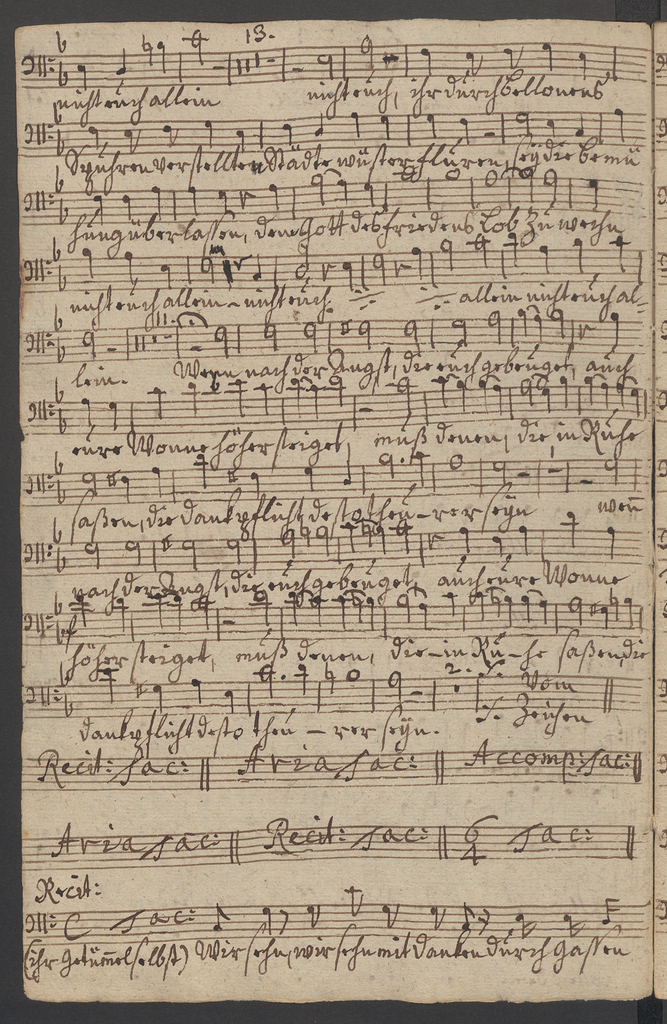 13.
nicht euch allein nicht euch, ihr durch Bellonens
Spuhren verstellten Städte wüster fluren, sey die bemü
hung überlassen, dem Gott des friedens Lob zu weihn
nicht euch allein - nicht euch. allein nicht euch al-
11.
lein. Wenn nach der Angst, die euch gebeuget, auch
eure Wonne höher steiget, muß denen, die in Ruhe
saßen, die dankpflicht desto theu-rer seyn wen̄
nach der Angst, die euch gebeuget, auch eure Wonne
höher steiget, muß denen, die - in Ru-he saßen, die
2. Vom
Zeichen
dankpflicht desto theu - rer seyn.
Recit: tac: || Aria tac: || Accomp: tac: ||
Aria tac: || Recit: tac: || 6/4 tac: ||
Recit:
C tac:
(ihr Getüm̄el selbst) Wir sehn, wir sehn mit danken durch gassen